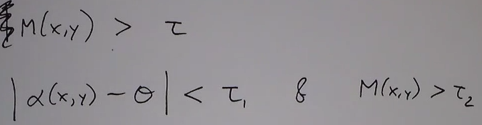 M(x,y) > τ
|α(x,y) - θ| < τ₁ & M(x,y) > τ₂